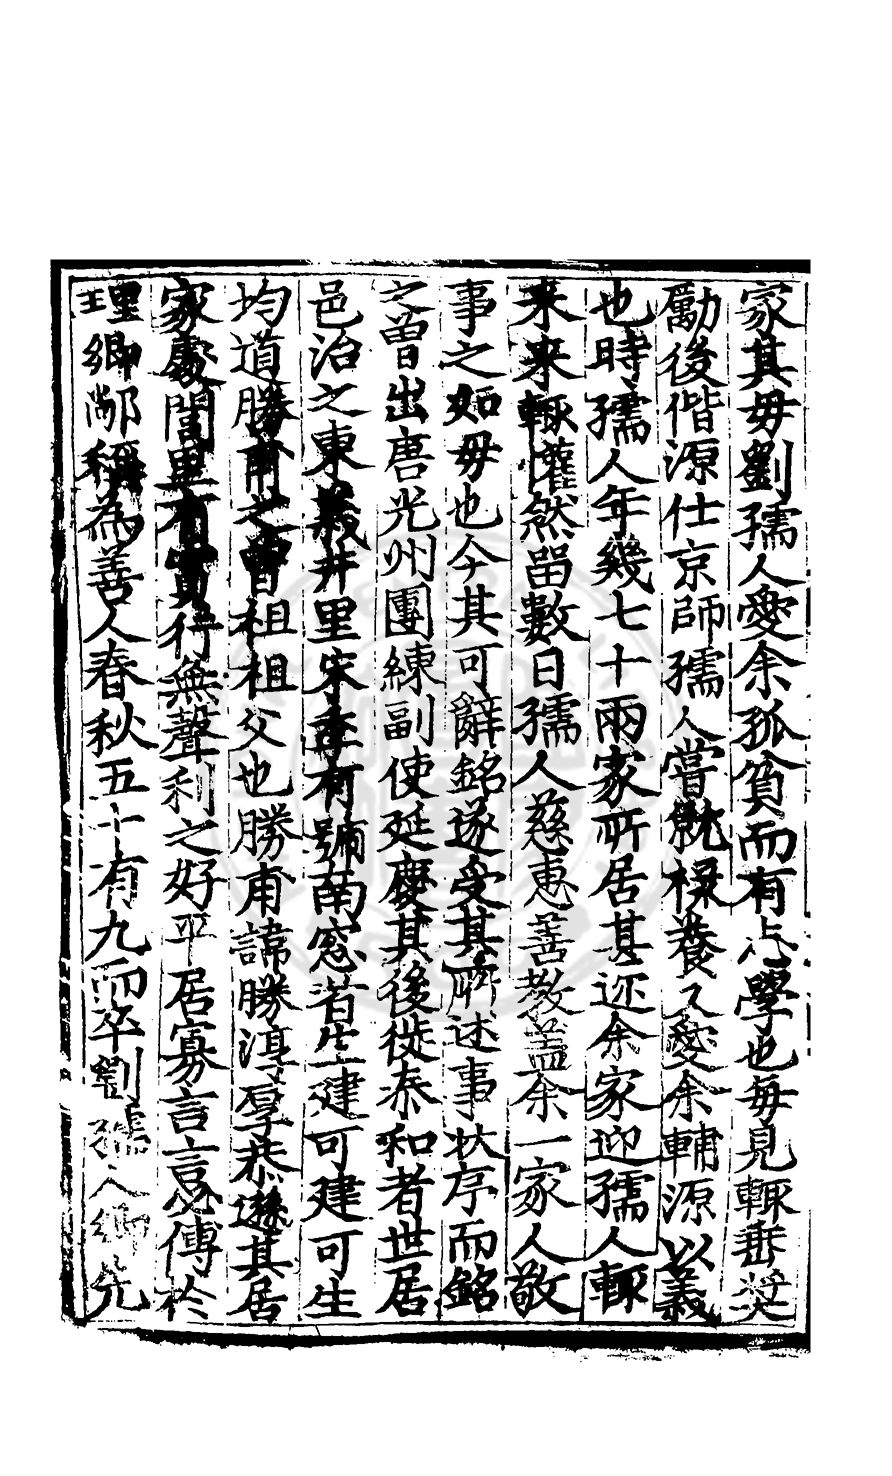 家其毋劉孺人愛余孤貧而有志學也每見輒垂奖
勵後偕源仕京師孺人嘗就祿養又愛余輔源以義
也時孺人年幾七十兩家所居甚迩余家迎孺人輒
来来輒懽然留數日孺人慈惠善教益余一家人敬
事之如毋也今其可辭銘遂受其所述事狀序而銘
之曽出唐光州團練副使延慶其後徙泰和者世居
邑治之東義井里宋季有號南窓者生建可建可生
均道勝甫之曽祖祖父也勝甫諱勝淳厚恭遜其居
家處閭里有實行無聲利之好平居寡言言必傅於
理鄉鄰稱為善人春秋五十有九而卒劉孺人鄉先